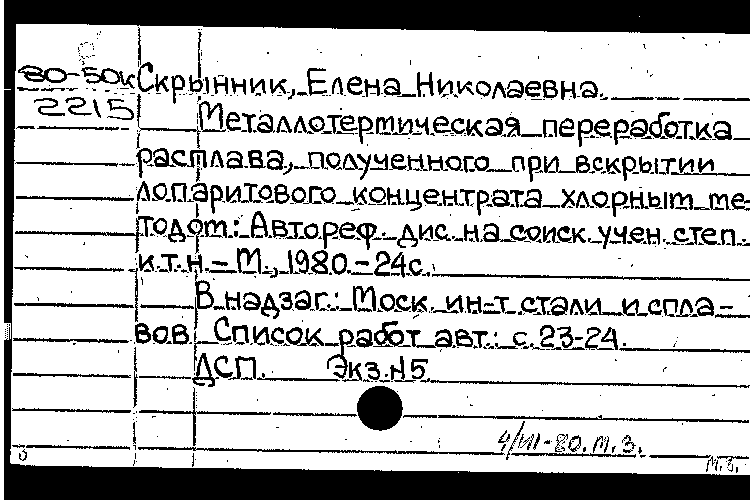 80-50к Скрынник, Елена Николаевна.
2215 Металлотермическая переработка
расплава, полученного при вскрытии
лопаритового концентрата хлорным ме-
тодом: Автореф. дис. на соиск. учен. степ.
к.т.н. – М., 1980.-24с.
В надзаг.: Моск. ин-т стали и спла-
вов. Список работ авт.: с. 23-24.
ДСП. Экз.№5.
4/VII-80. М.З.
М.З.